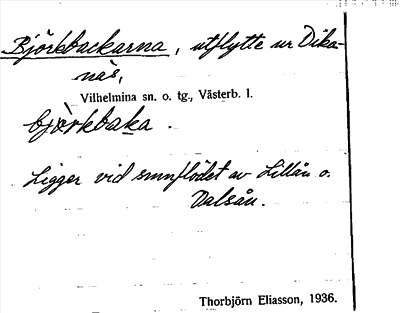 Björkbackarna, utflytte ur Dika-
näs,
Vilhelmina sn. o. tg., Västerb. l.
bjòrkbaka.
Ligger vid smnflödet av Lillån o.
Dalsån.
Thorbjörn Eliasson, 1936.